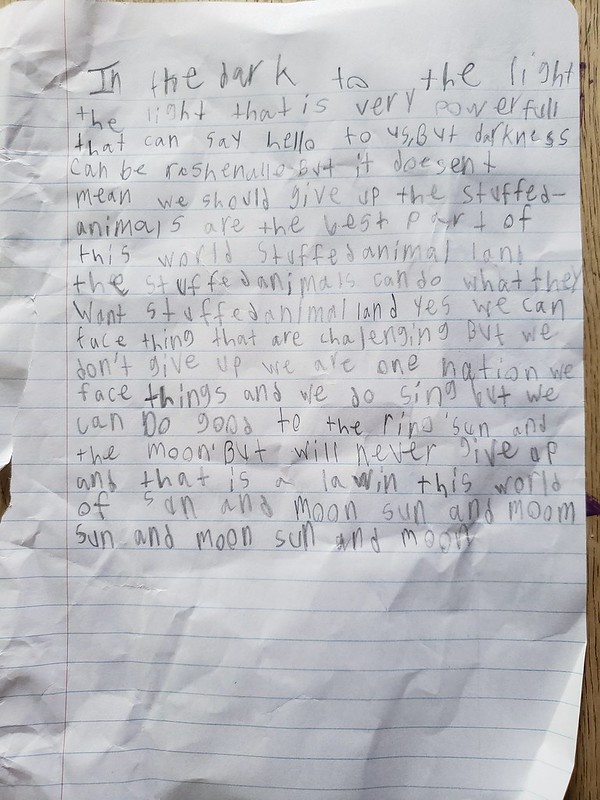 In the dark to the light
the light that is very powerfull
that can say hello to us, But darkness
can be But it doesent
mean we should give up the stuffed-
animals are the best part of
this world stuffedanimal land
the stuffedanimals can do what they
want stuffedanimalland yes we can
face thing that are chalenging But we
don't give up we are one nation we
face things and we do sing but we
can Do good to the ring 'sun and
the moon' But will never give up
and that is a law in this world
of sun and moon sun and moom
sun and moon sun and moon